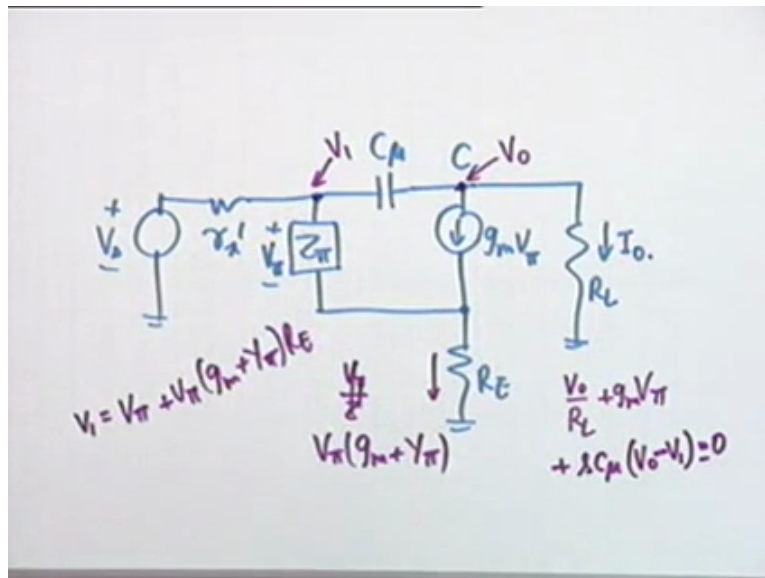 V₁ Cμ C V₀
+ Vₛ −
rₓ'
+ Vπ −
Zπ
gₘVπ
↓ I₀.
R_L
V₁ = Vπ + Vπ(gₘ+Yπ)R_E
↓ R_E
Vπ(gₘ+Yπ)
V₀/R_L + gₘVπ
+ sCμ(V₀-V₁)=0